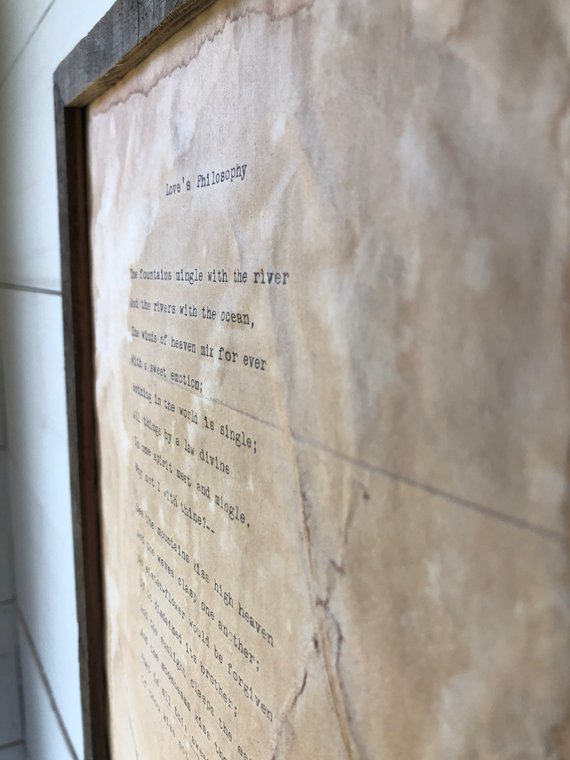 Love's Philosophy
The fountains mingle with the river
And the rivers with the ocean,
The winds of heaven mix for ever
With a sweet emotion;
Nothing in the world is single;
All things by a law divine
In one spirit meet and mingle.
Why not I with thine?--
See the mountains kiss high heaven
And the waves clasp one another;
No sister-flower would be forgiven
If it disdained its brother;
And the sunlight clasps the
And the moonbeams kiss the
What is all this sweet
If thou kiss not